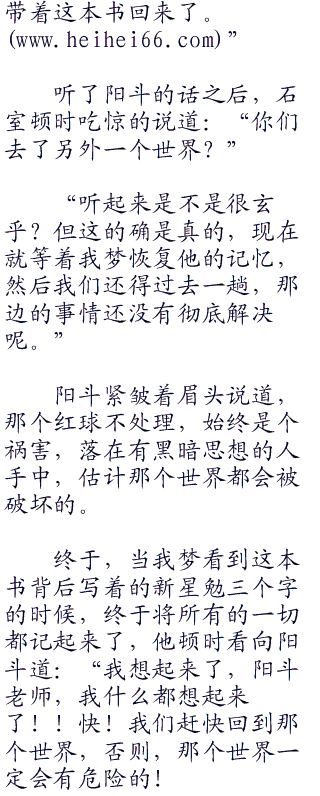 带着这本书回来了。
(www.heihei66.com)”
听了阳斗的话之后，石
室顿时吃惊的说道：“你们
去了另外一个世界？”
“听起来是不是很玄
乎？但这的确是真的，现在
就等着我梦恢复他的记忆，
然后我们还得过去一趟，那
边的事情还没有彻底解决
呢。”
阳斗紧皱着眉头说道，
那个红球不处理，始终是个
祸害，落在有黑暗思想的人
手中，估计那个世界都会被
破坏的。
终于，当我梦看到这本
书背后写着的新星勉三个字
的时候，终于将所有的一切
都记起来了，他顿时看向阳
斗道：“我想起来了，阳斗
老师，我什么都想起来
了！！快！我们赶快回到那
个世界，否则，那个世界一
定会有危险的！